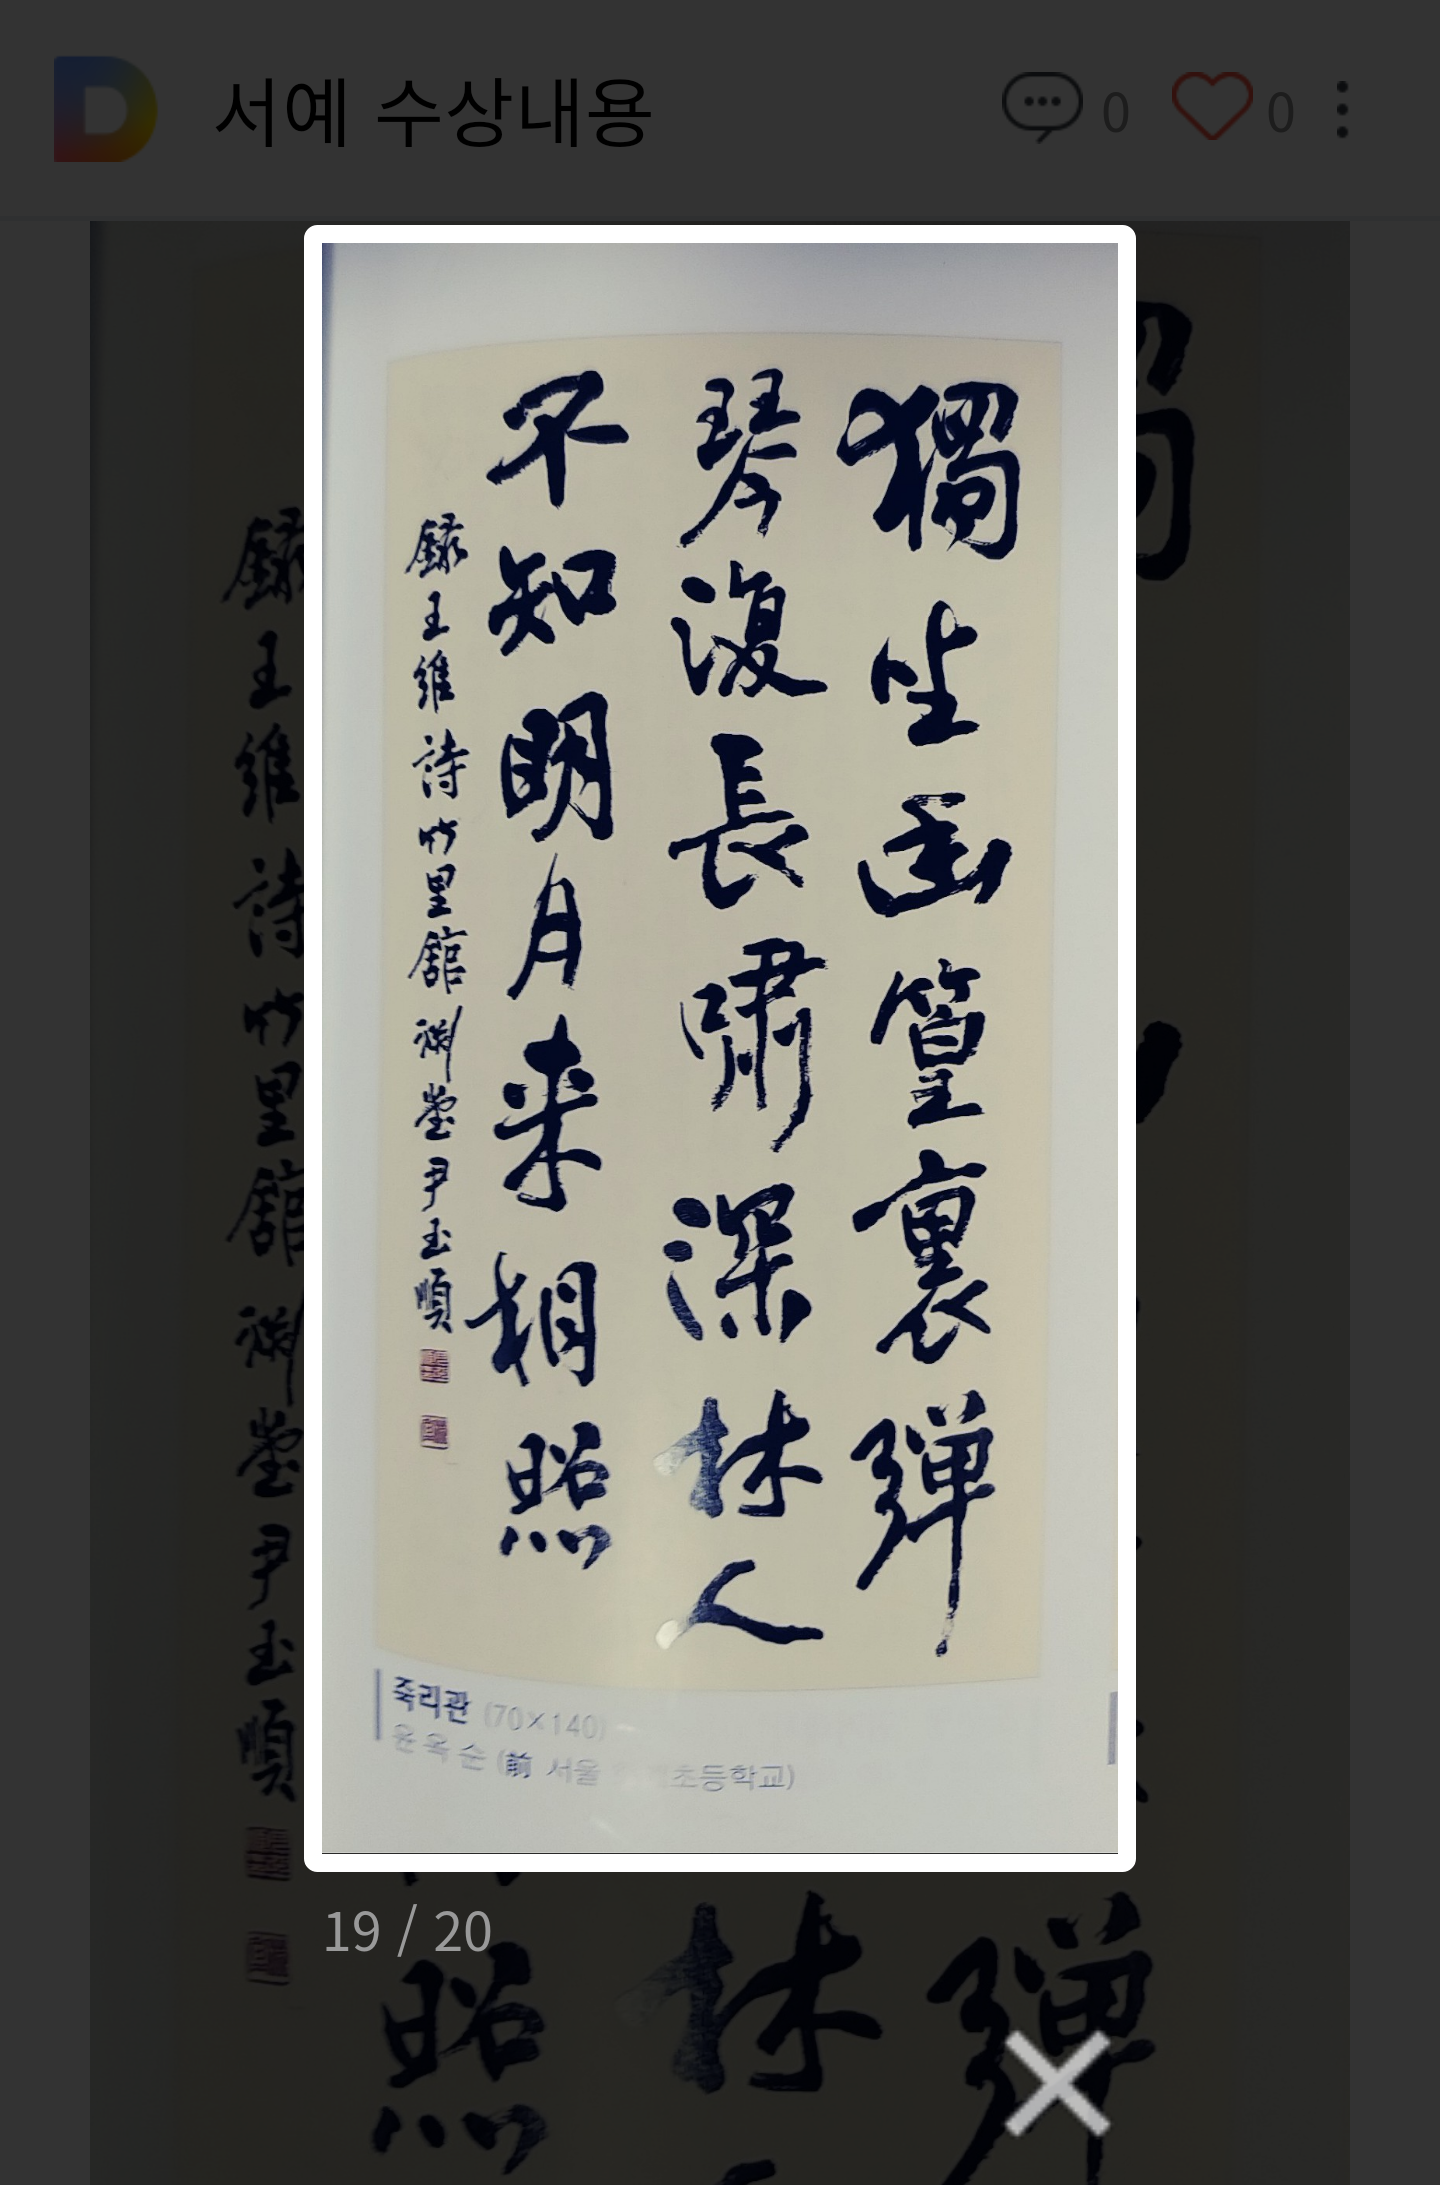 서예 수상내용
0
0
獨坐幽篁裏彈
琴復長嘯深林人
不知明月来相照
錄王維詩竹里舘 尹玉順
죽리관 (70×140)
윤옥순 (前 서울 초등학교)
19 / 20